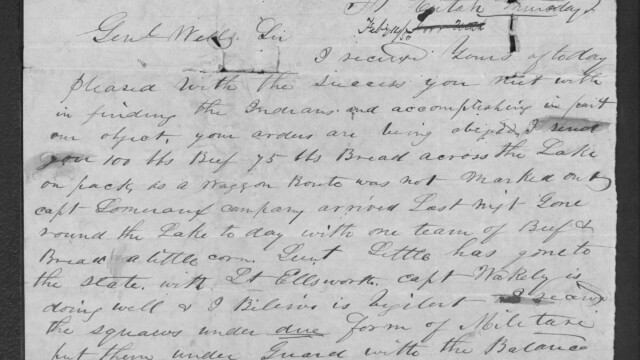 Ft Utah Thursday
Feby 14/50
Genl Wells Sir
I received yours of today
pleased with the success you met with
in finding the Indians and accomplishing in part
our object, your orders are being obeyed, I send
you 100 lbs Beef 75 lbs Bread across the Lake
on packs as a waggon Route was not marked out
capt company arrived Last nigt Gone
round the Lake to day with one team of Beef &
Bread a little corn. Lieut Little has gone to
the state with Lt Ellsworth. capt Wakely is
doing well & I Believe is vigilent I
the squaws under due form of Militari
put them under Guard with the Balance